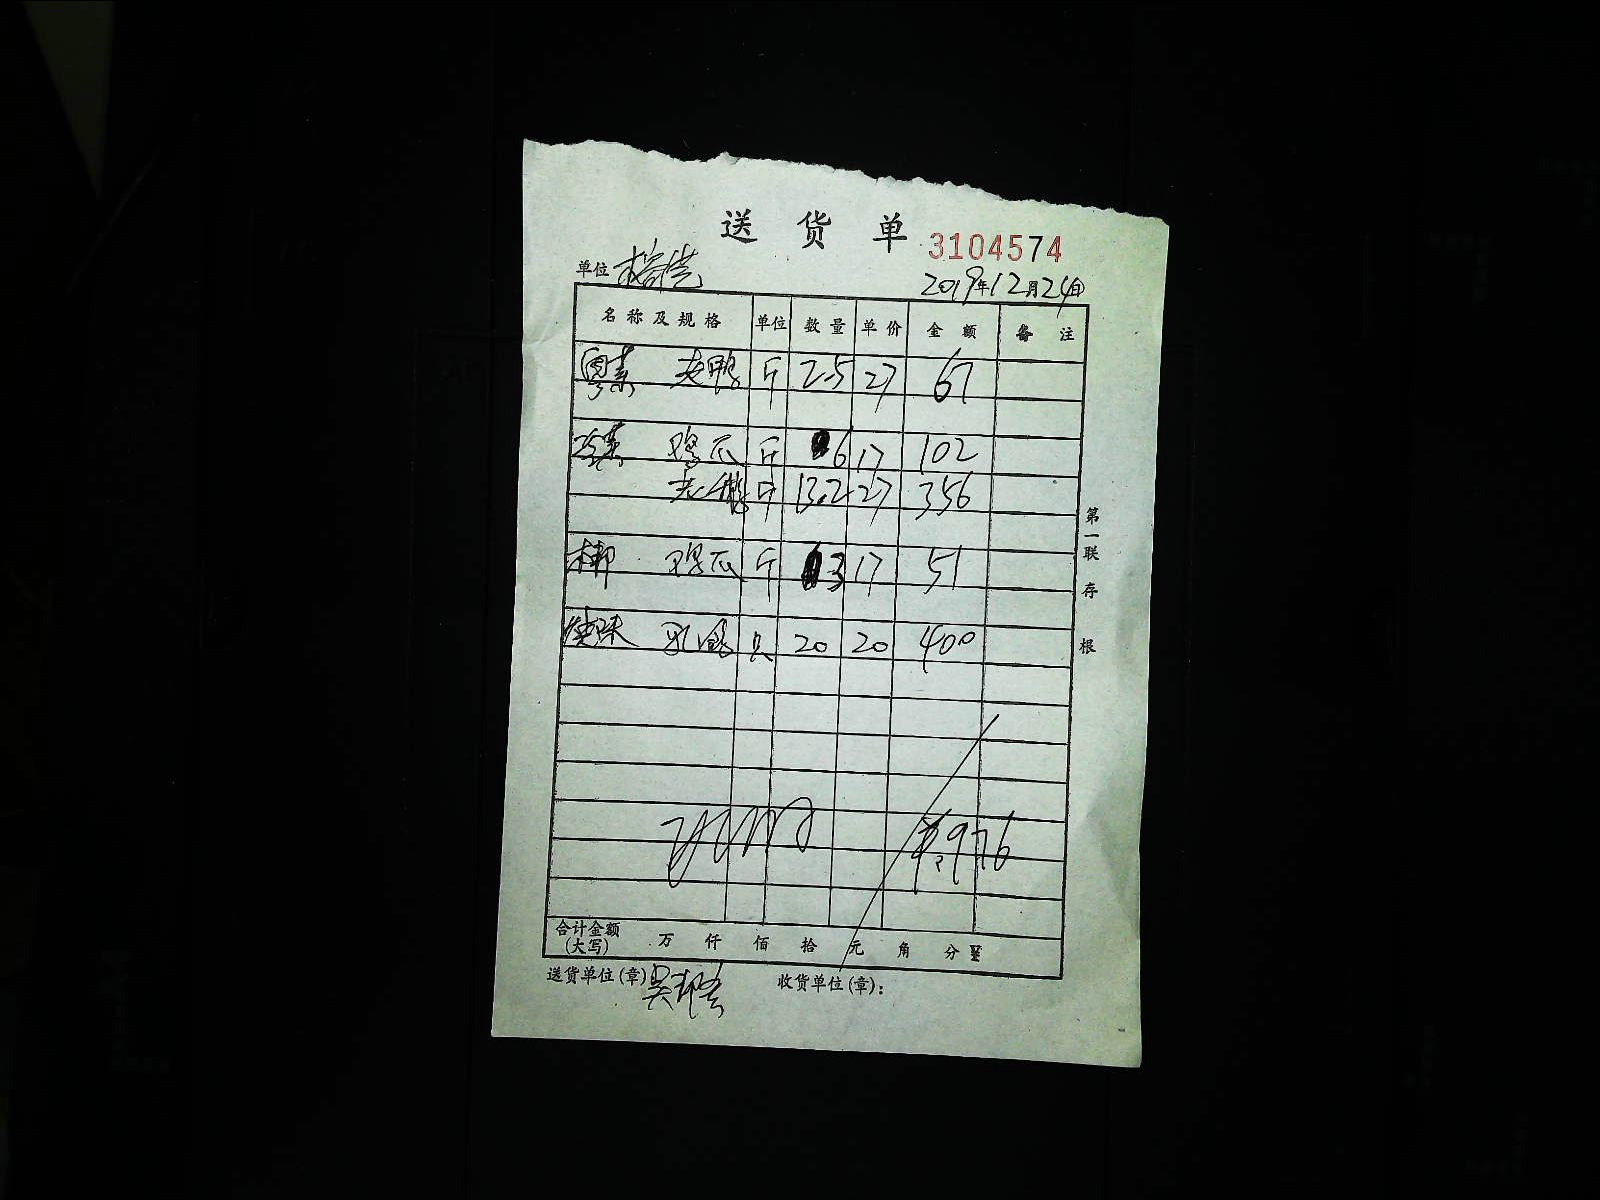 送货单 3104574
单位 2019年12月24日
名称及规格 单位 数量 单价 金额 备注
老鸭 斤 2.5 27 67
冷菜 斤 6 17 102
老鹅 斤 13.2 27 356
斤 3 17 51
乳鸽 只 20 20 400
¥:976
合计金额(大写) 万 仟 佰 拾 元 角 分
送货单位(章) 收货单位(章):
第一联 存根